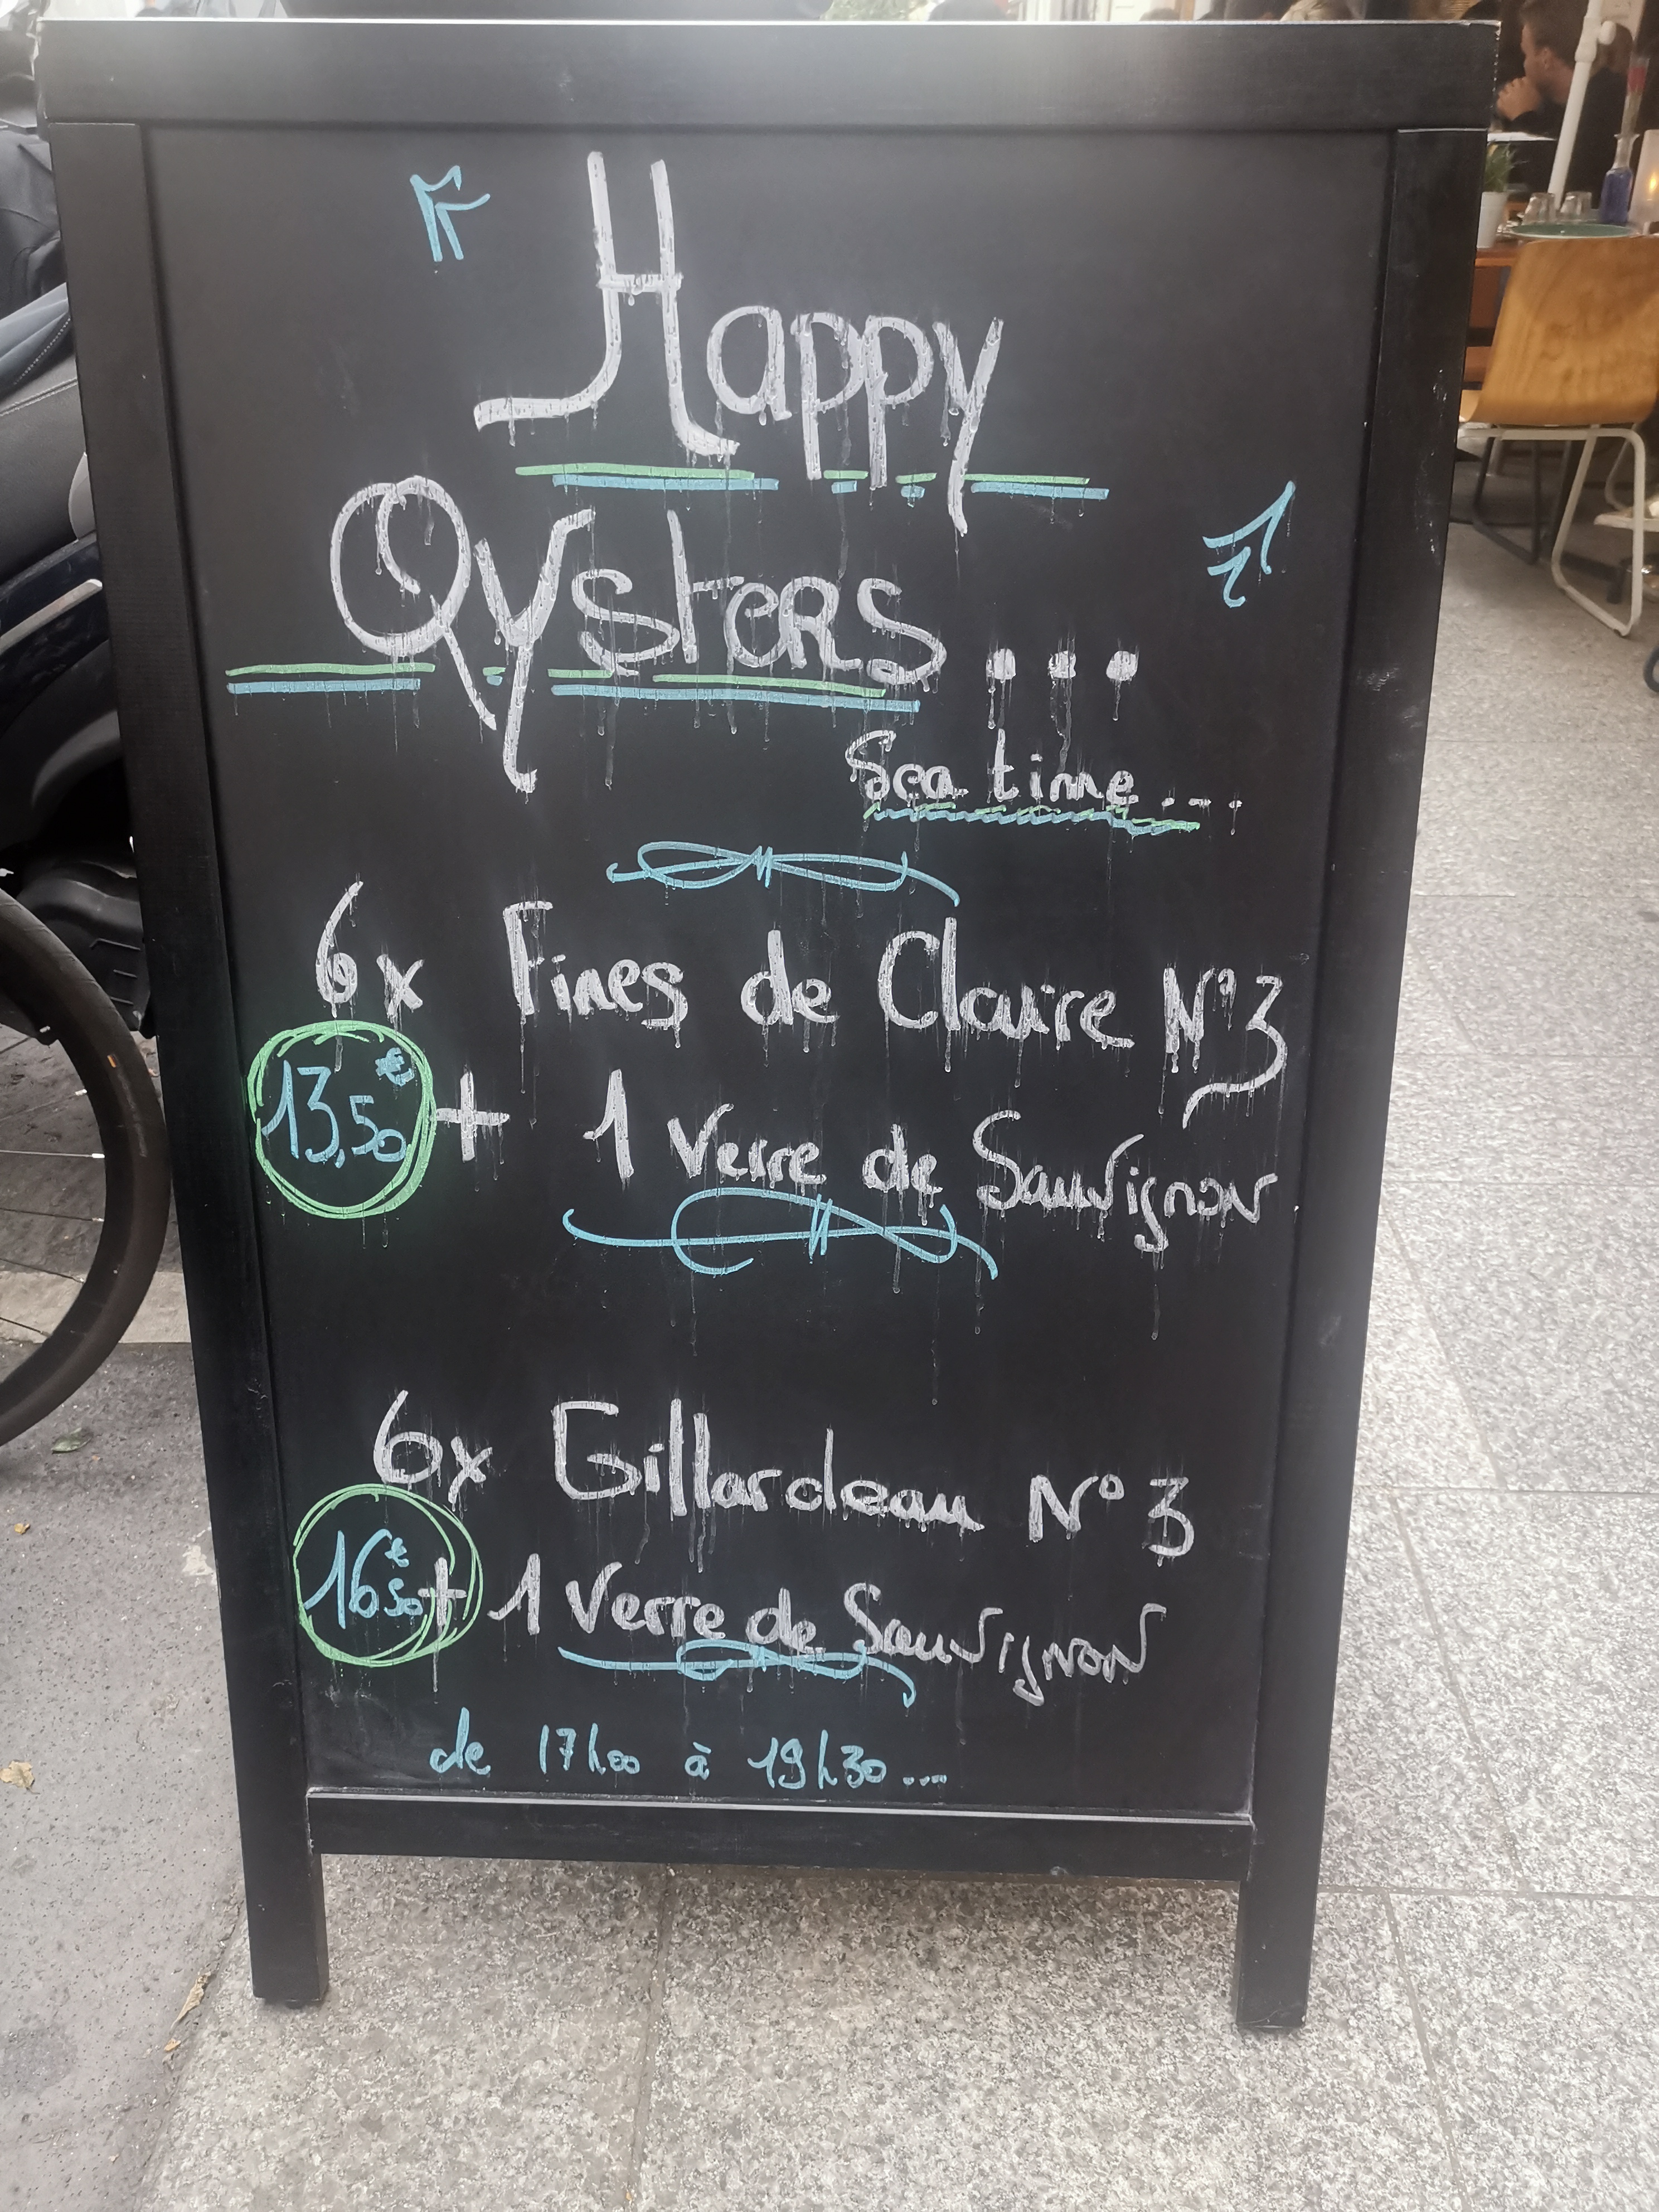 Happy
Oysters...
Sea time...
6x Fines de Claire N°3
13,50€ + 1 Verre de Sauvignon
6x Gillardeau N°3
16€50 + 1 Verre de Sauvignon
de 17h00 à 19h30...